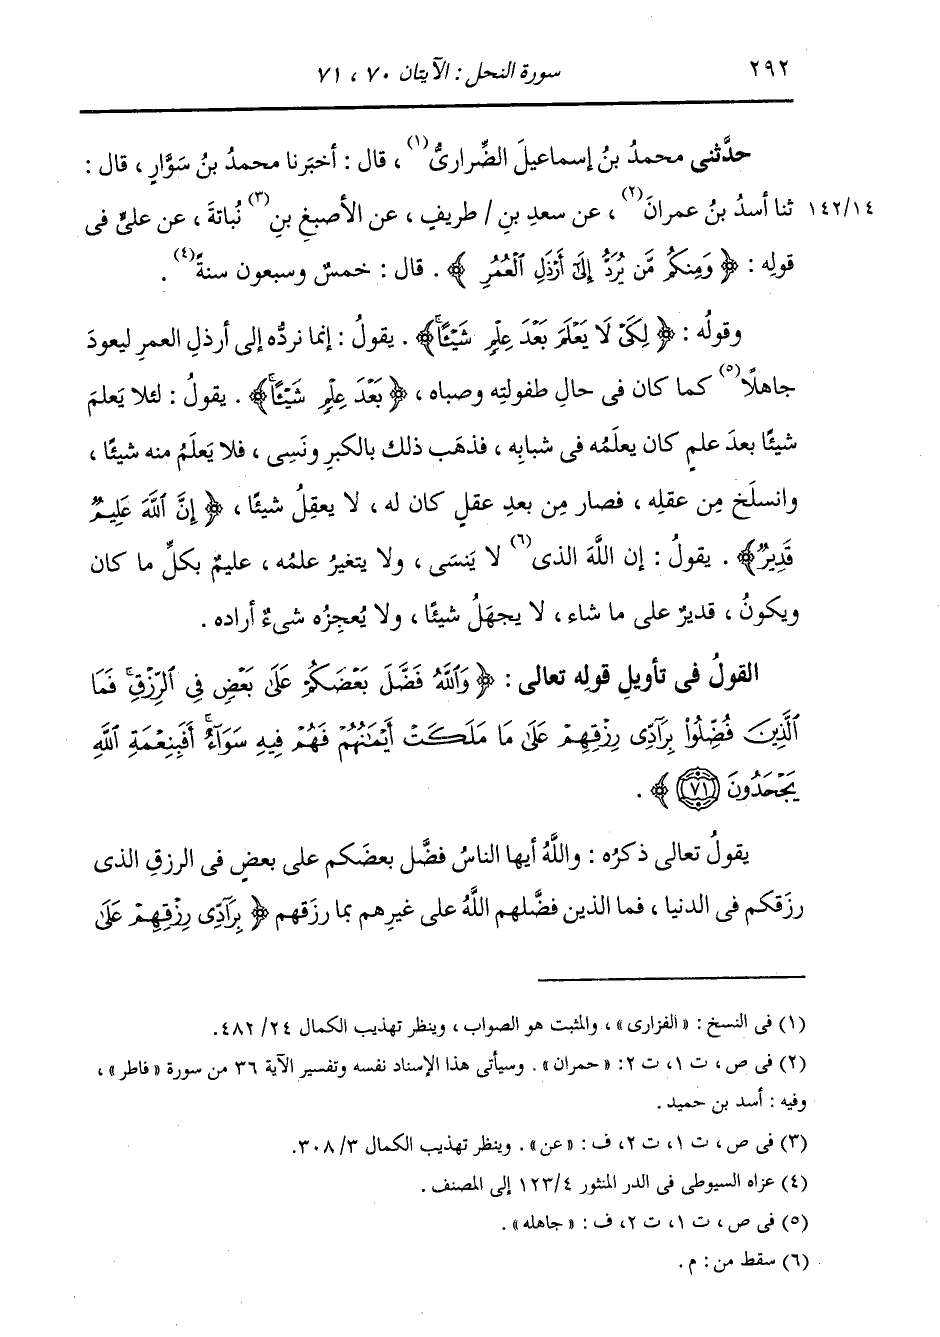 ٢٩٢ سورة النحل : الآيتان ٧٠ ، ٧١
حدَّثنى محمدُ بنُ إسماعيلَ الضِّرارىُّ(١) ، قال : أخبَرنا محمدُ بنُ سَوَّارٍ ، قال :
١٤٢/١٤ ثنا أسدُ بنُ عمرانَ(٢) ، عن سعدِ بنِ / طريفٍ ، عن الأصبغِ بنِ(٣) نُباتةَ ، عن علىٍّ فى
قولِه : ﴿ وَمِنكُم مَّن يُرَدُّ إِلَىٰٓ أَرْذَلِ ٱلْعُمُرِ ﴾ . قال : خمسٌ وسبعون سنةً(٤) .
وقولُه : ﴿ لِكَىْ لَا يَعْلَمَ بَعْدَ عِلْمٍ شَيْـًٔاۚ﴾ . يقولُ : إنما نردُّه إلى أرذلِ العمرِ ليعودَ
جاهلًا(٥) كما كان فى حالِ طفولتِه وصباه ، ﴿بَعْدَ عِلْمٍ شَيْـًٔاۚ﴾ . يقولُ : لئلا يَعلمَ
شيئًا بعدَ علمٍ كان يعلَمُه فى شبابِه ، فذهَب ذلك بالكبرِ ونَسِى ، فلا يَعلَمُ منه شيئًا ،
وانسلَخ مِن عقلِه ، فصار مِن بعدِ عقلٍ كان له ، لا يعقِلُ شيئًا ، ﴿ إِنَّ ٱللَّهَ عَلِيمٌ
قَدِيرٌ﴾ . يقولُ : إن اللَّهَ الذى(٦) لا يَنسَى ، ولا يتغيرُ علمُه ، عليمٌ بكلِّ ما كان
ويكونُ ، قديرٌ على ما شاء ، لا يجهَلُ شيئًا ، ولا يُعجِزُه شىءٌ أراده .
القولُ فى تأويلِ قولِه تعالى : ﴿ وَٱللَّهُ فَضَّلَ بَعْضَكُمْ عَلَىٰ بَعْضٍ فِى ٱلرِّزْقِۚ فَمَا
ٱلَّذِينَ فُضِّلُوا۟ بِرَآدِّى رِزْقِهِمْ عَلَىٰ مَا مَلَكَتْ أَيْمَٰنُهُمْ فَهُمْ فِيهِ سَوَآءٌۚ أَفَبِنِعْمَةِ ٱللَّهِ
يَجْحَدُونَ ٧١ ﴾ .
يقولُ تعالى ذكرُه : واللَّهُ أيها الناسُ فضَّل بعضَكم على بعضٍ فى الرزقِ الذى
رزَقكم فى الدنيا ، فما الذين فضَّلهم اللَّهُ على غيرِهم بما رزَقهم ﴿ بِرَآدِّى رِزْقِهِمْ عَلَىٰ
(١) فى النسخ : «الفزارى» ، والمثبت هو الصواب ، وينظر تهذيب الكمال ٢٤/ ٤٨٢.
(٢) فى ص ، ت ١، ت ٢: «حمران» . وسيأتى هذا الإسناد نفسه وتفسير الآية ٣٦ من سورة «فاطر» ،
وفيه : أسد بن حميد .
(٣) فى ص ، ت ١، ت ٢، ف : «عن» . وينظر تهذيب الكمال ٣/ ٣٠٨.
(٤) عزاه السيوطى فى الدر المنثور ١٢٣/٤ إلى المصنف .
(٥) فى ص ، ت ١، ت ٢، ف : «جاهله» .
(٦) سقط من : م .